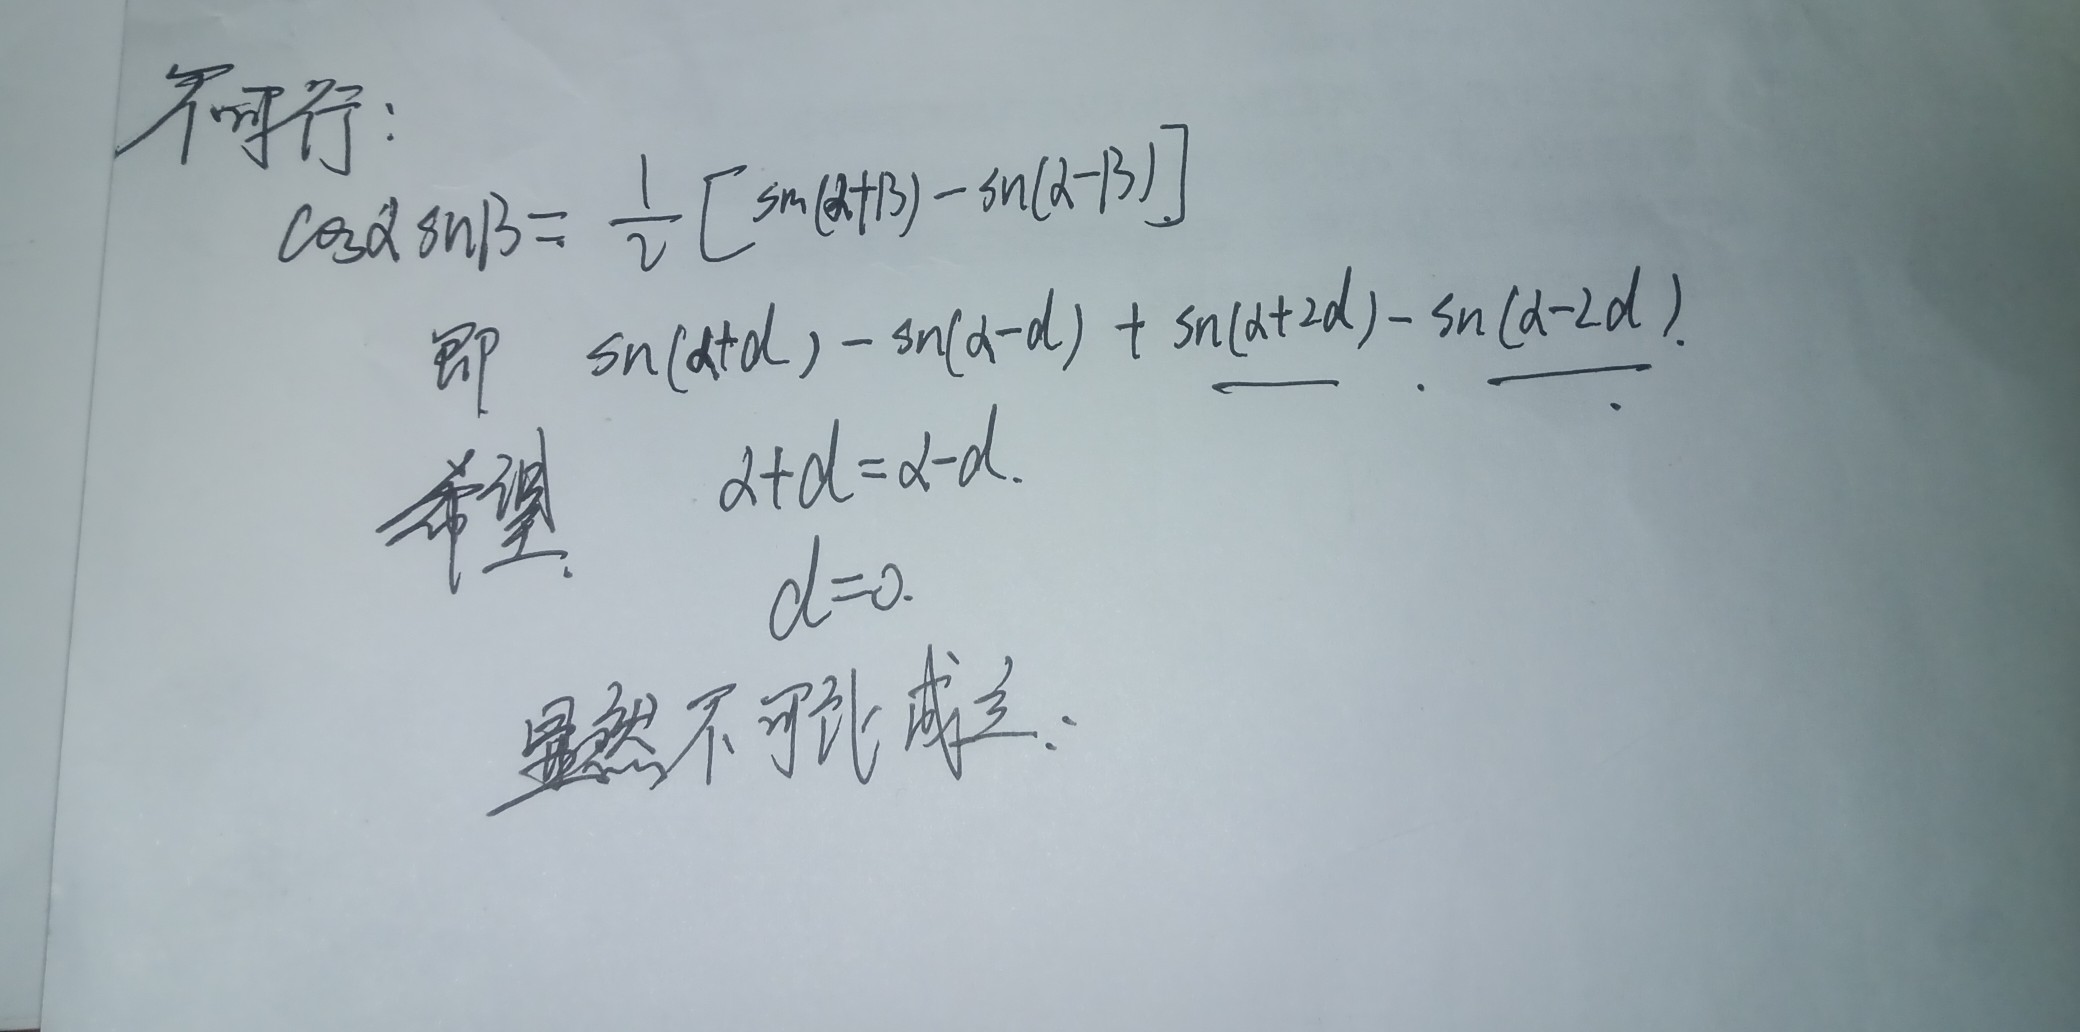 不可行:
cosα sinβ = 1/2 [sin(α+β) - sin(α-β)]
即 sin(α+d) - sin(α-d) + sin(α+2d) - sin(α-2d).
希望. α+d=α-d.
d=0.
显然不可能成立.